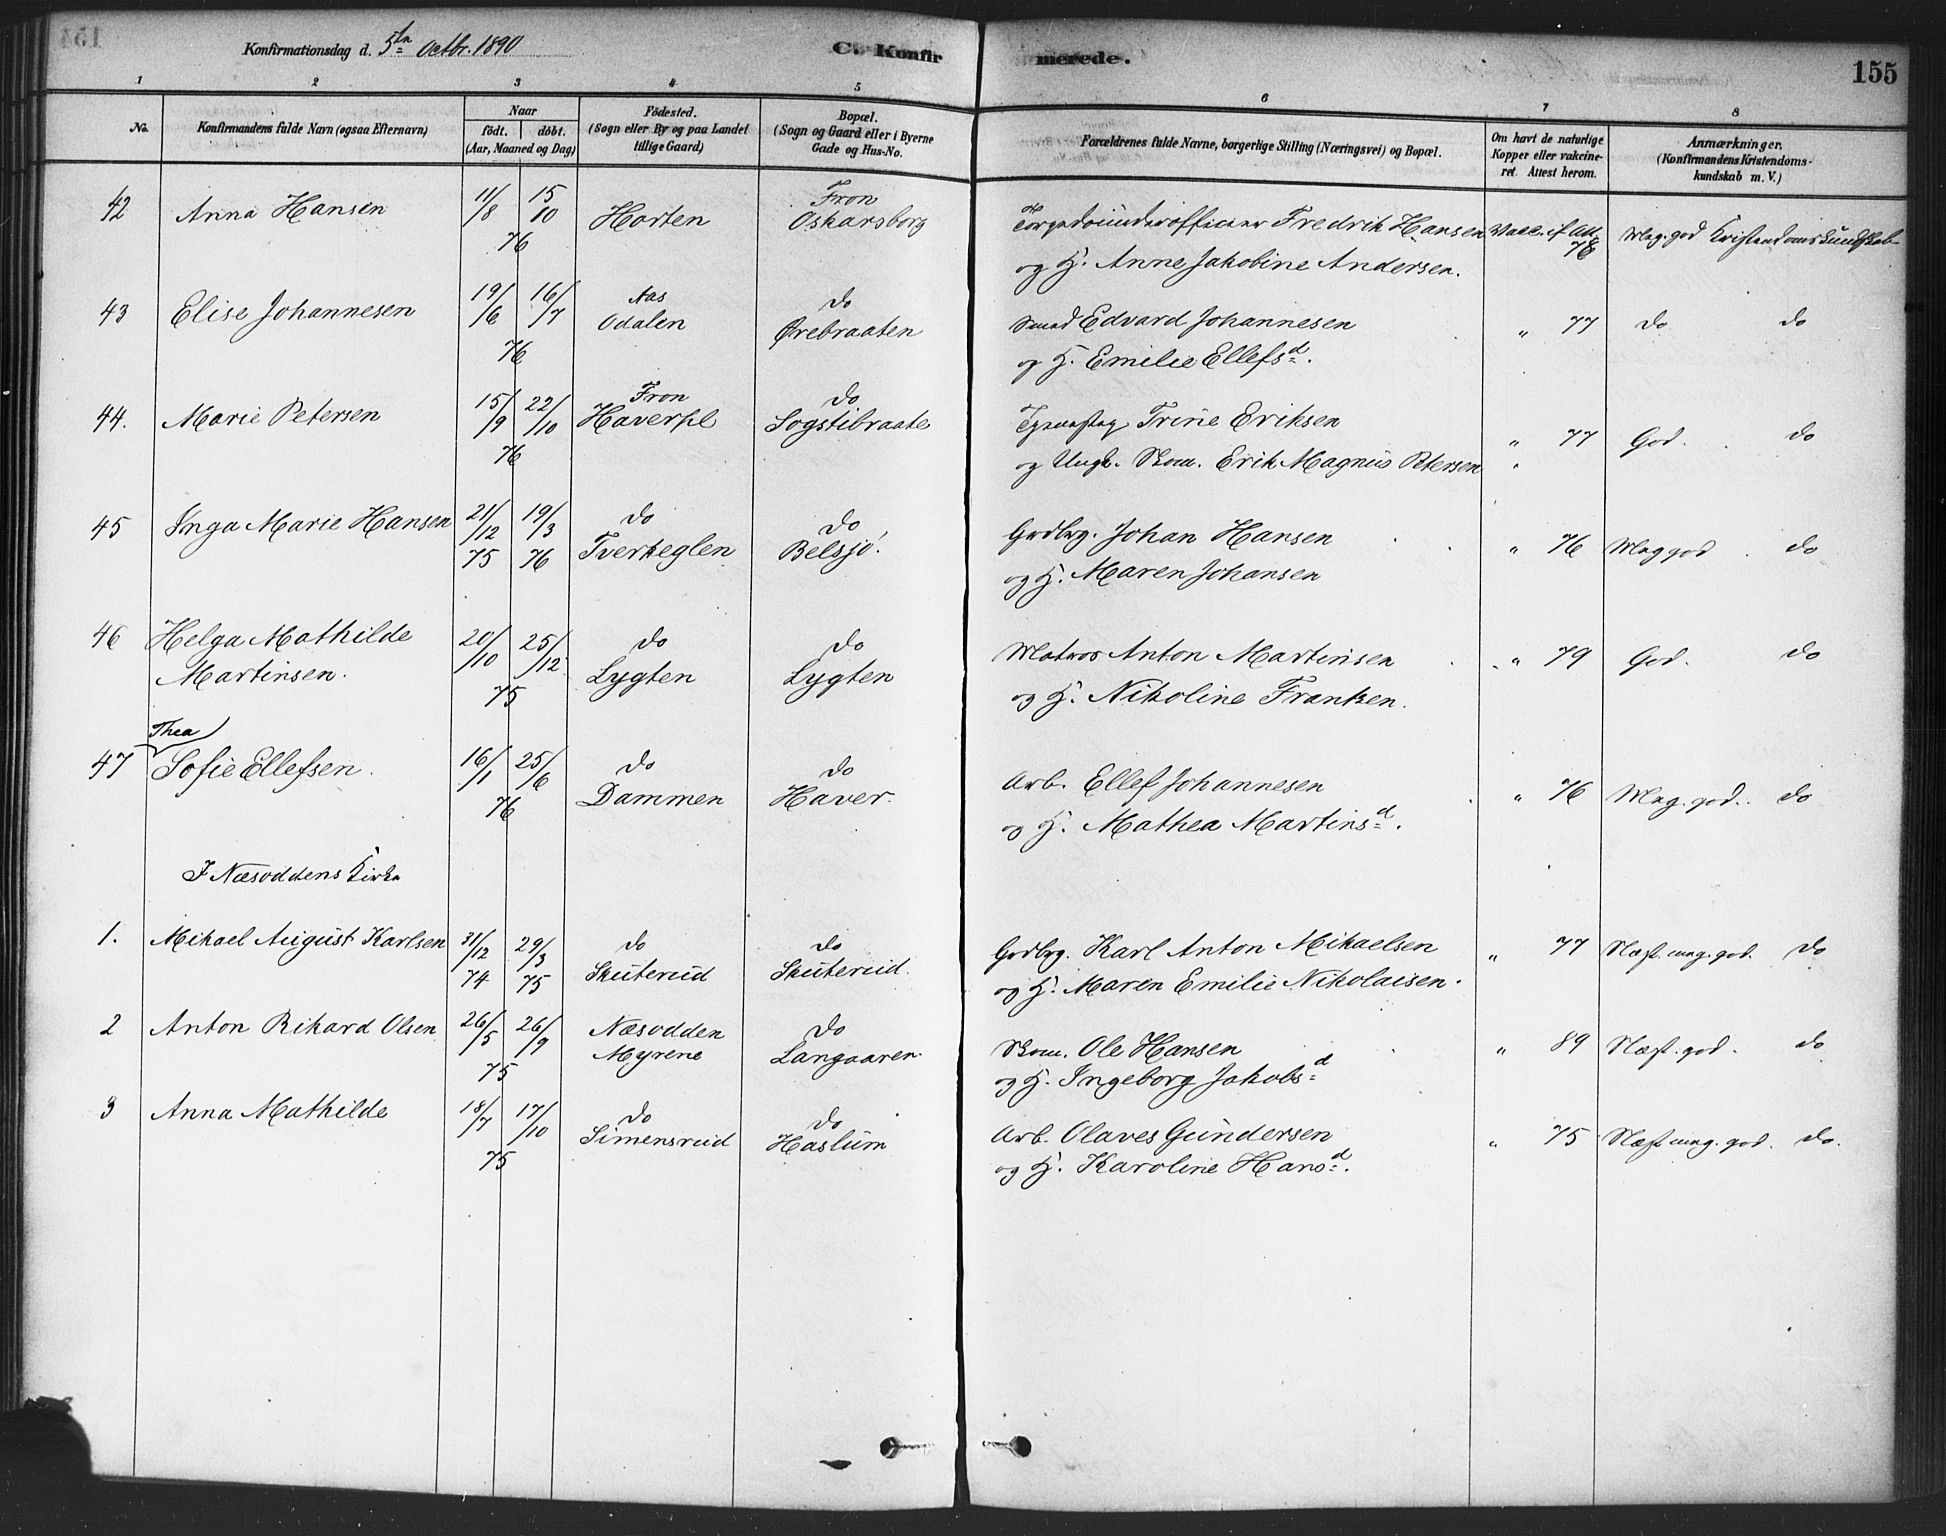 Konfirmationsdag d. 5te Octbr. 1890
C. Konfirmerede.
155
1 2 3 4 5 6 7 8
No.
Konfirmandens fulde Navn (ogsaa Efternavn)
Naar
födt. döbt.
(Aar, Maaned og Dag)
Födested.
(Sogn eller By og paa Landet
tillige Gaard)
Bopæl.
(Sogn og Gaard eller i Byerne
Gade og Hus-No.
Forældrenes fulde Navne, borgerlige Stilling (Næringsvei) og Bopæl.
Om havt de naturlige
Kopper eller vakcine-
ret. Attest herom.
Anmærkninger.
(Konfirmandens Kristendoms-
kundskab m. V.)
42 Anna Hansen 11/8 15/10 76 Horten Fron Oskarsborg
Torpedounderofficier Fredrik Hansen
og H. Anne Jakobine Andersen.
Vacc. if. Att. 78 Meg. god Kristendomskundskab
43 Elise Johannesen 19/6 16/7 76 Aas Odalen do Ørebraaten
Smed Edvard Johannesen
og H. Emilie Ellefsd.
" 77 do do
44. Marie Petersen 15/9 22/10 76 Fron Haverpl do Sogstibraate
Trine Eriksen
og Ungk. Skom. Erik Magnus Petersen
" 77 God. do
45 Inga Marie Hansen 21/12 75 19/3 76 do Tverkeglen do Belsjø.
Grdbrg. Johan Hansen
og H. Maren Johansen
" 76 Meg god do
46 Helga Mathilde
Martinsen. 20/10 25/12 75 do Lygten do Lygten
Matros Anton Martinsen
og H. Nikoline Franken.
" 79 God. do
Thea
47 Sofie Ellefsen. 16/1 25/6 76 do Dammen do Haver.
Arb. Ellef Johannesen
og H. Mathea Martinsd.
" 76 Meg. god. do
I Næsoddens Kirke
1. Mikael August Karlsen 31/12 74 29/3 75 do Skuterud do Skuterud.
Grdbrg. Karl Anton Mikaelsen
og H. Maren Emilie Nikolaisen.
" 77 Næst. meg. god. do
2 Anton Rikard Olsen 26/5 26/9 75 Næsodden Myrene do Langaaren
Skom. Ole Hansen
og H. Ingeborg Jakobsd
" 89 Næst. god. do
3 Anna Mathilde 18/7 17/10 75 do Simensrud do Haslum
Arb. Olaves Gundersen
og H. Karoline Hansd.
" 75 Næst meg. god. do.